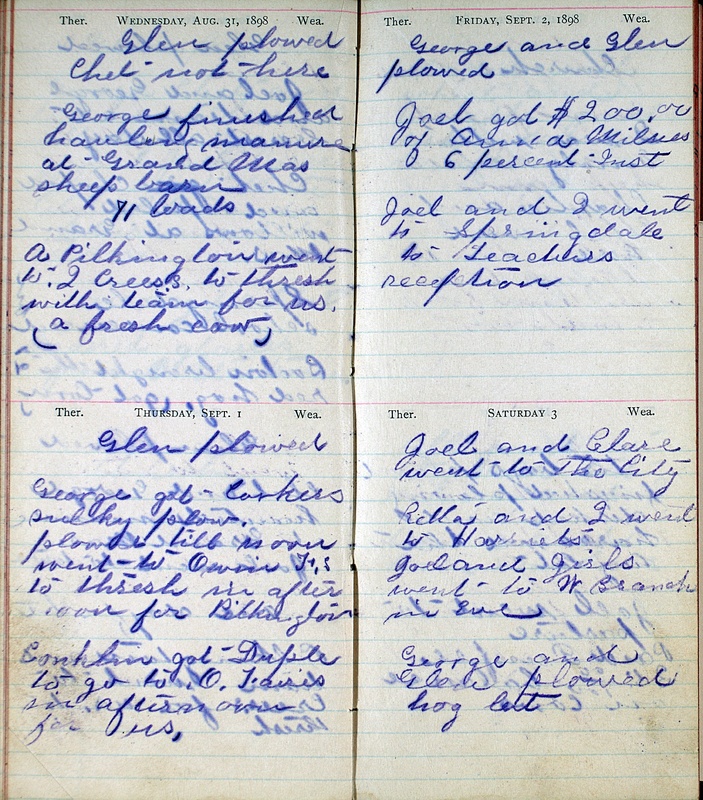 Ther. WEDNESDAY, AUG. 31, 1898 Wea.
Glen plowed
Chet not here
George finished
hauling manure
at Grand Mas
sheep barn
71 loads
A Pilkington went
to J Crees's to thresh
with team for us.
(a fresh cow)
Ther. THURSDAY, SEPT. 1 Wea.
Glen plowed
George got
sulky plow.
plowed till noon
went to Owin F,s
to thresh in after
noon for Pilkington
Conklin got Duple
to go to O. Faws
in afternoon
for us,
Ther. FRIDAY, SEPT. 2, 1898 Wea.
George and Glen
plowed
Joel got $200.00
of Anna Milnes
6 percent Inst
Joel and I went
to Springdale
to Teachers
reception
Ther. SATURDAY 3 Wea.
Joel and Clare
went to The City
Rilla and I went
to Harriets
Joel and girls
went to W Branch
in Eve
George and
Glen plowed
hog lot